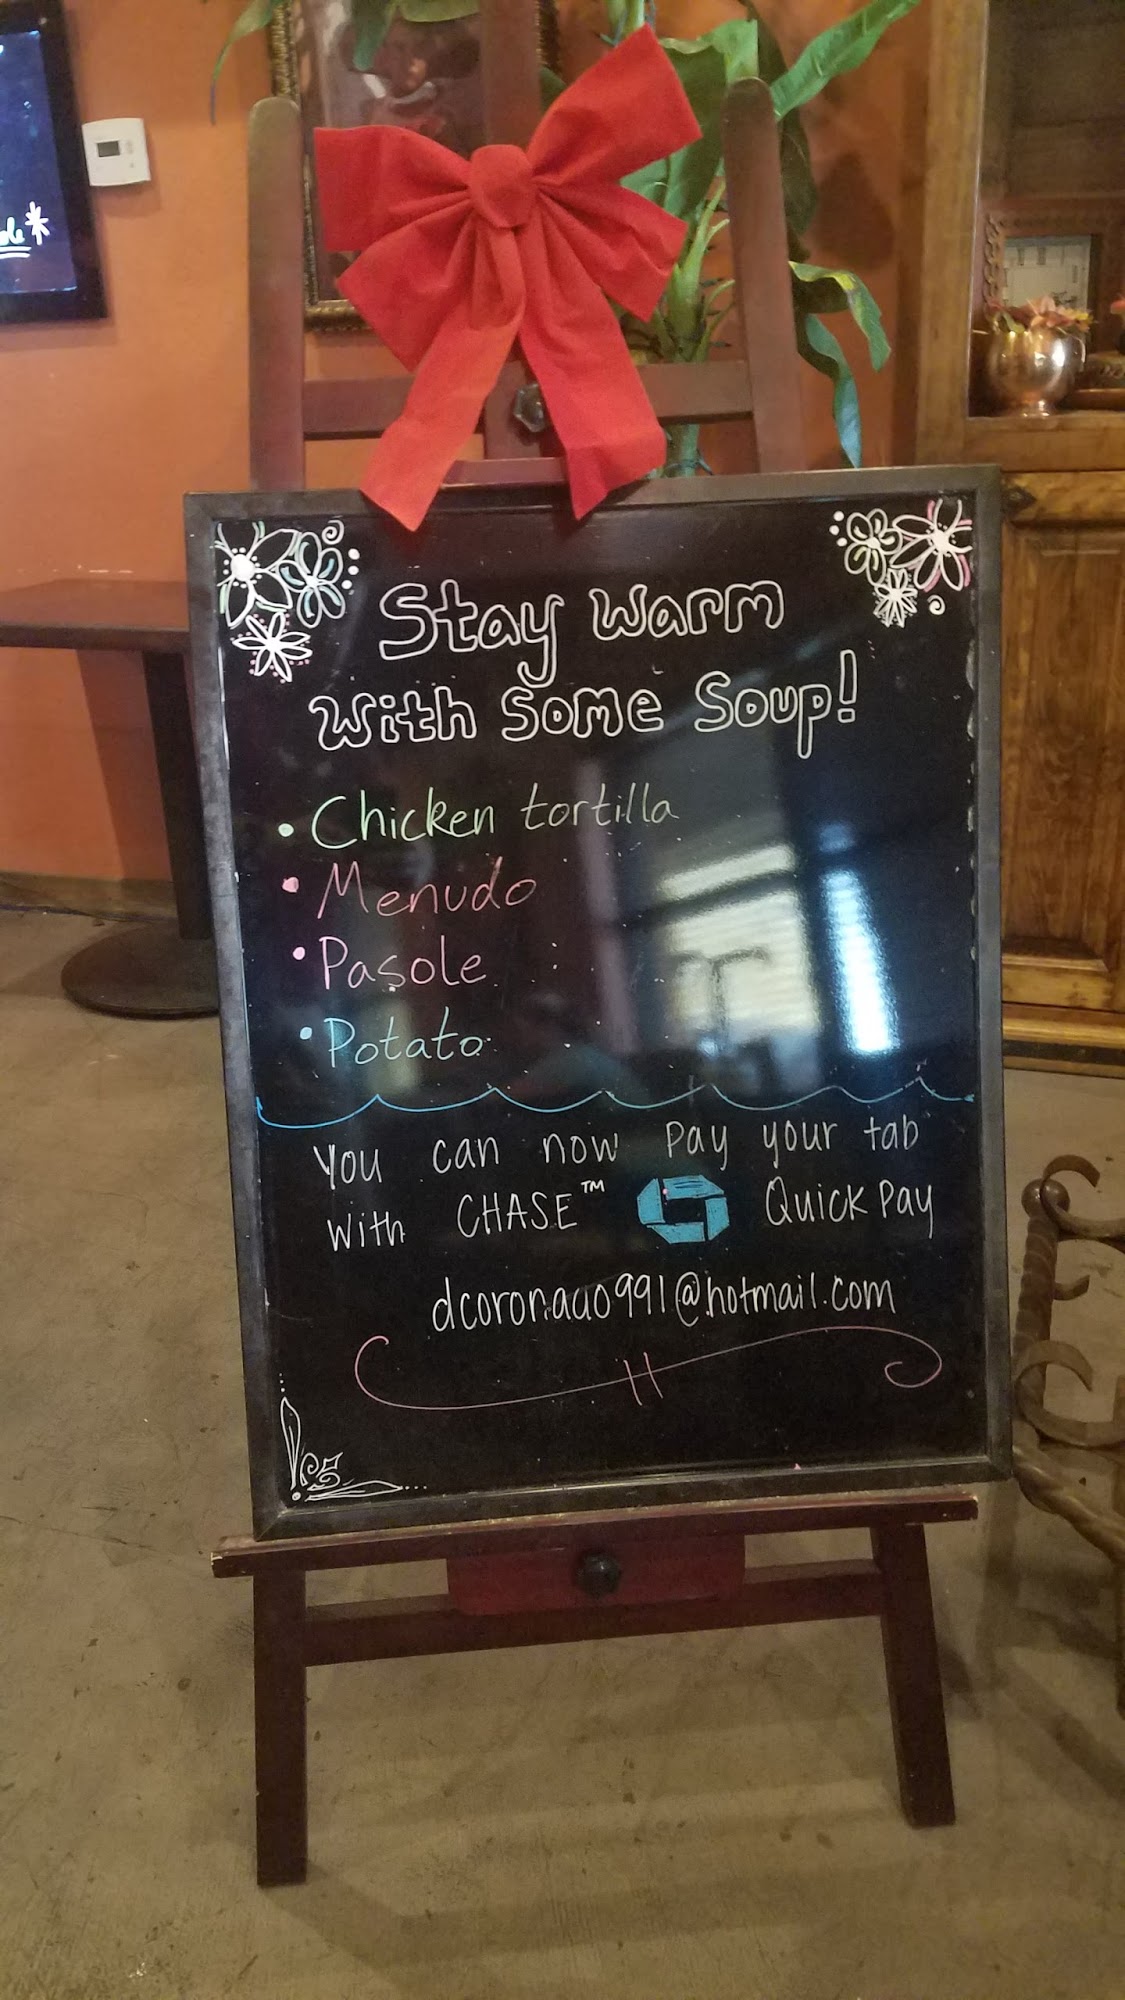 Stay warm
with some Soup!
• Chicken tortilla
• Menudo
• Pasole
• Potato
You can now pay your tab
with CHASE™ QuickPay
dcoronado991@hotmail.com